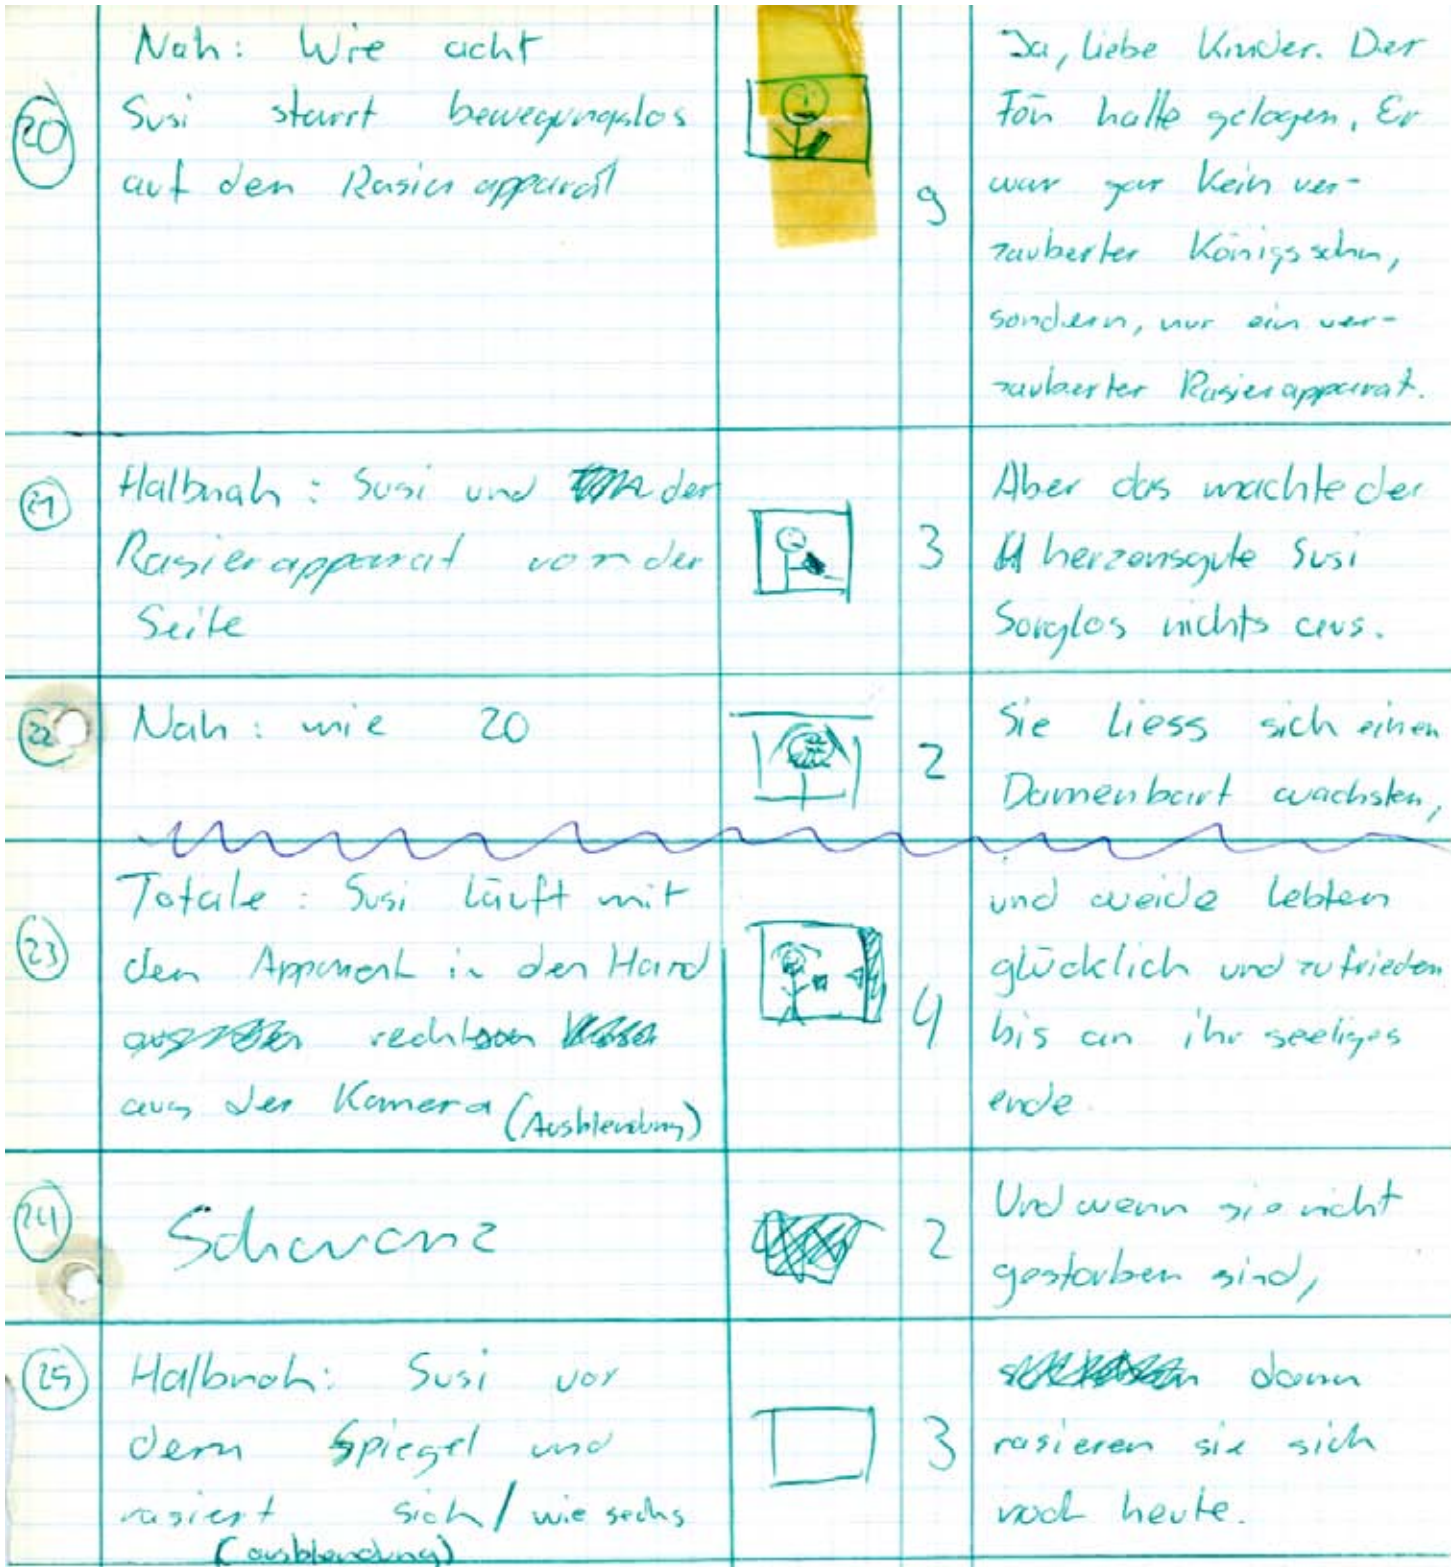 20
Nah: Wie acht
Susi starrt bewegungslos
auf den Rasierapparat
9
Ja, liebe Kinder. Der
Fön hatte gelogen, Er
war gar kein ver-
zauberter Königssohn,
sondern, nur ein ver-
zauberter Rasierapparat.
21
Halbnah: Susi und der
Rasierapparat von der
Seite
3
Aber das machte der
herzensgute Susi
Sorglos nichts aus.
22
Nah: wie 20
2
Sie liess sich einen
Damenbart wachsten,
23
Totale: Susi läuft mit
den Apparat in den Hand
rechts
aus der Kamera (Ausblendung)
4
und beide lebten
glücklich und zufrieden
bis an ihr seeliges
ende.
24
Schwarz
2
Und wenn sie nicht
gestorben sind,
25
Halbnah: Susi vor
dem Spiegel und
rasiert sich / wie sechs
(ausblendung)
3
dann
rasieren sie sich
noch heute.